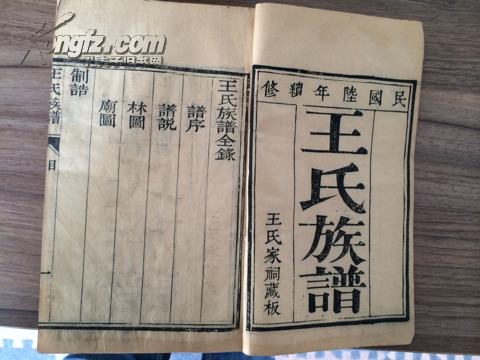 民國陸年續修
王氏族譜
王氏家祠藏板
王氏族譜全錄
譜序
譜説
林圖
廟圖
制誥
王氏族譜
目
一
kongfz.com
孔夫子旧书网